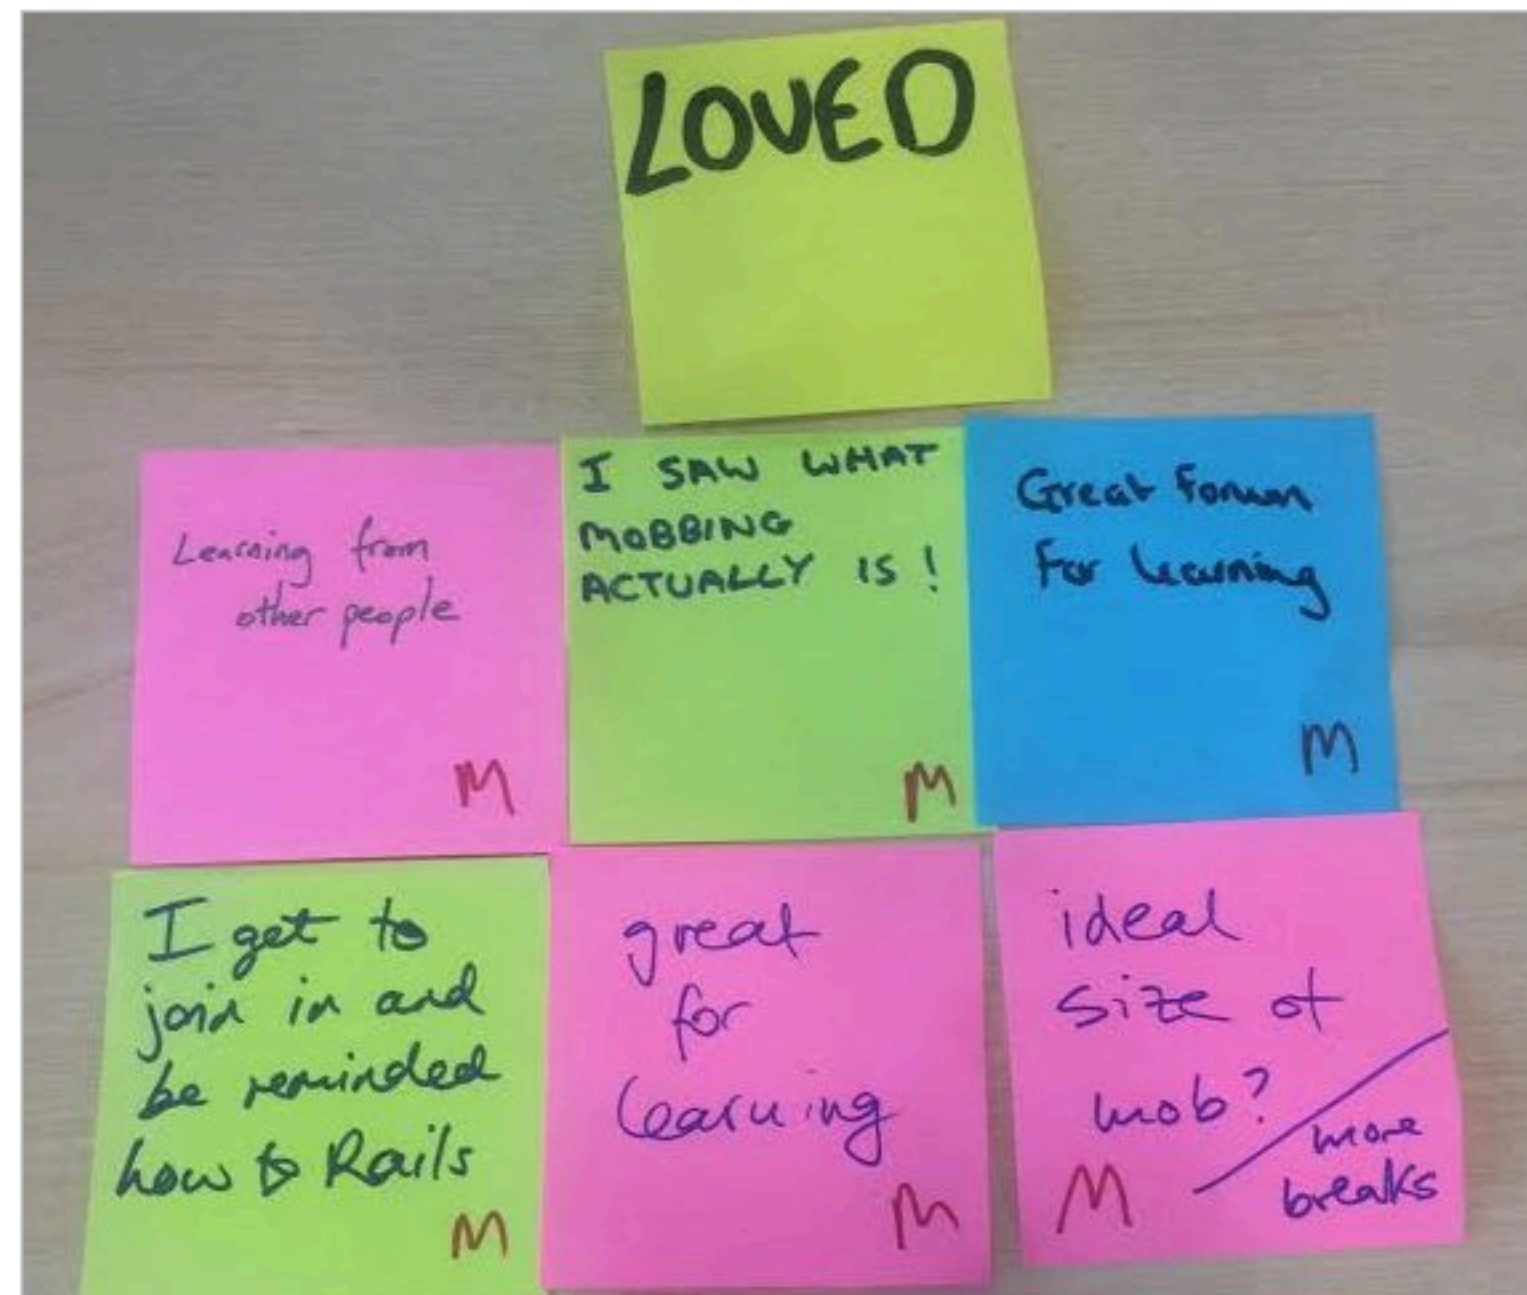 LOVED
Learning from
other people
M
I SAW WHAT
MOBBING
ACTUALLY IS!
M
Great Forum
For Learning
M
I get to
join in and
be reminded
how to Rails
M
great
for
learning
M
ideal
size of
mob?
more
breaks
M